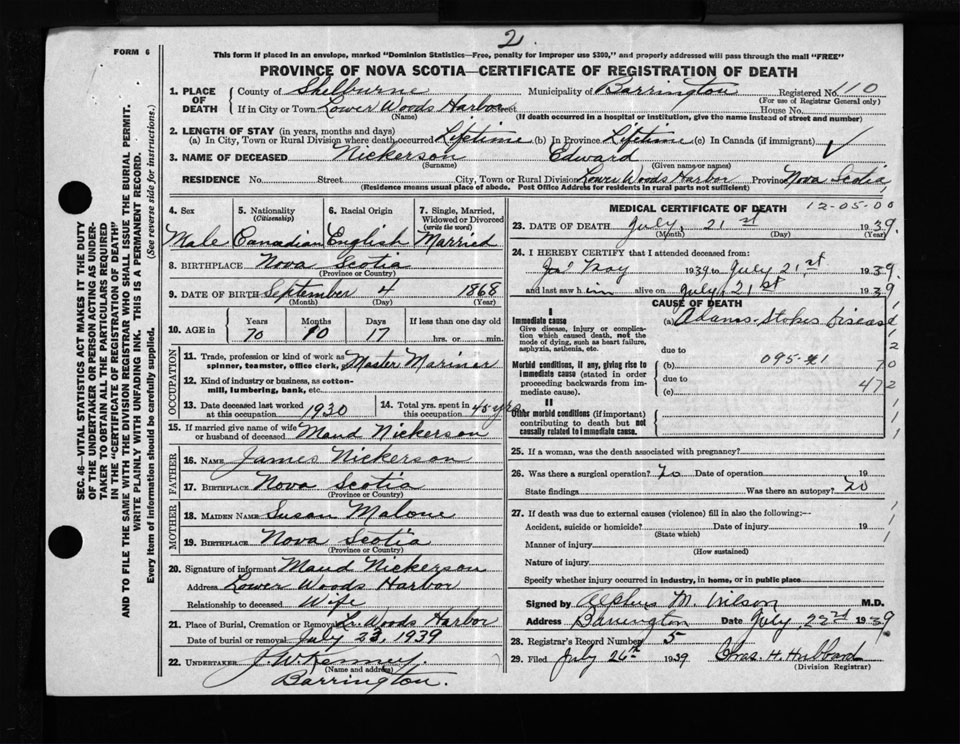 2.
FORM 6
This form if placed in an envelope, marked "Dominion Statistics—Free, penalty for improper use $300," and properly addressed will pass through the mail "FREE"
PROVINCE OF NOVA SCOTIA—CERTIFICATE OF REGISTRATION OF DEATH
SEC. 46—VITAL STATISTICS ACT MAKES IT THE DUTY
OF THE UNDERTAKER OR PERSON ACTING AS UNDER-
TAKER TO OBTAIN ALL THE PARTICULARS REQUIRED
IN THE "CERTIFICATE OF REGISTRATION OF DEATH"
AND TO FILE THE SAME WITH THE DIVISION REGISTRAR WHO SHALL ISSUE THE BURIAL PERMIT.
WRITE PLAINLY WITH UNFADING INK. THIS IS A PERMANENT RECORD.
Every item of information should be carefully supplied. (See reverse side for instructions.)
1. PLACE OF DEATH County of Shelburne Municipality of Barrington Registered No. 110
(For use of Registrar General only)
If in City or Town Lower Woods Harbor Street House No.
(Name) (If death occurred in a hospital or institution, give the name instead of street and number)
2. LENGTH OF STAY (in years, months and days)
(a) In City, Town or Rural Division where death occurred Lifetime (b) In Province Lifetime (c) In Canada (if immigrant) ✓
3. NAME OF DECEASED Nickerson Edward
(Surname) (Given name or names)
RESIDENCE No. Street City, Town or Rural Division Lower Woods Harbor Province Nova Scotia
(Residence means usual place of abode. Post Office Address for residents in rural parts not sufficient)
4. Sex 5. Nationality (Citizenship) 6. Racial Origin 7. Single, Married, Widowed or Divorced (write the word)
Male Canadian English Married
8. BIRTHPLACE Nova Scotia
(Province or Country)
9. DATE OF BIRTH September 4 1868
(Month) (Day) (Year)
10. AGE in Years Months Days If less than one day old
70 10 17 hrs. or min.
OCCUPATION
11. Trade, profession or kind of work as spinner, teamster, office clerk, Master Mariner
12. Kind of industry or business, as cotton-mill, lumbering, bank, etc.
13. Date deceased last worked at this occupation 1930 14. Total yrs. spent in this occupation 45 yrs
15. If married give name of wife or husband of deceased Maud Nickerson
FATHER
16. NAME James Nickerson
17. BIRTHPLACE Nova Scotia
(Province or Country)
MOTHER
18. MAIDEN NAME Susan Malone
19. BIRTHPLACE Nova Scotia
(Province or Country)
20. Signature of informant Maud Nickerson
Address Lower Woods Harbor
Relationship to deceased Wife
21. Place of Burial, Cremation or Removal Lr. Woods Harbor
Date of burial or removal July 23, 1939
22. UNDERTAKER J. W. Kenney.
(Name and address)
Barrington.
MEDICAL CERTIFICATE OF DEATH 12-05-00
23. DATE OF DEATH July, 21st 1939.
(Month) (Day) (Year)
24. I HEREBY CERTIFY that I attended deceased from:
1939 to July 21st 1939.
and last saw him alive on July, 21st 1939
CAUSE OF DEATH
I
Immediate cause (a) Adams-Stokes Disease
Give disease, injury or complica-
tion which caused death, not the
mode of dying, such as heart failure,
asphyxia, asthenia, etc.
due to
Morbid conditions, if any, giving rise to (b) 095
immediate cause (stated in order
proceeding backwards from im-
mediate cause).
due to 472
(c)
II
Other morbid conditions (if important)
contributing to death but not
causally related to immediate cause.
25. If a woman, was the death associated with pregnancy?
26. Was there a surgical operation? no Date of operation 19
State findings Was there an autopsy? no
27. If death was due to external causes (violence) fill in also the following:—
Accident, suicide or homicide? Date of injury 19
(State which)
Manner of injury
(How sustained)
Nature of injury
Specify whether injury occurred in industry, in home, or in public place
Signed by Alphus M. Wilson M.D.
Address Barrington Date July 22nd 1939
28. Registrar's Record Number 5
29. Filed July 26th 1939 Chas. H. Hubbard
(Division Registrar)